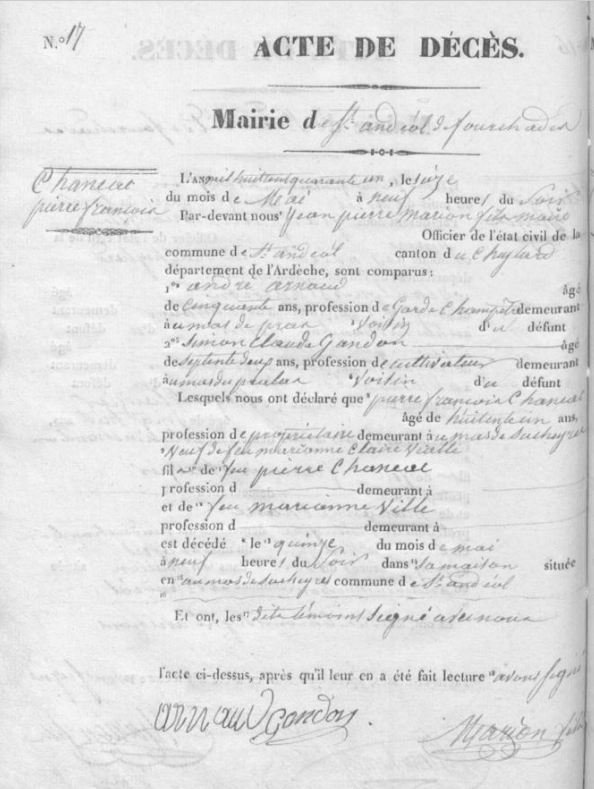 N.º 17
ACTE DE DÉCÈS.
Mairie de St andéol de fourchades
Chaneac
pierre françois
L'an mil huit cent quarante un, le seize
du mois de Mai à neuf heures du Soir
Par-devant nous Jean pierre Marion fils maire
Officier de l'état civil de la
commune de St andéol canton du Cheylard
département de l'Ardèche, sont comparus :
1º andré arnaud âgé
de Cinquante ans, profession de Garde Champêtre demeurant
au mas de voisin du défunt
2º Simon Claude Gandon âgé
de Septente deux ans, profession de cultivateur demeurant
au mas du voisin du défunt
Lesquels nous ont déclaré que pierre françois Chaneac
âgé de huitente un ans,
profession de propriétaire demeurant au mas de
Veuf de feu marianne Claire
fils de feu pierre Chaneac
profession d demeurant à
et de feu marianne Ville
profession d demeurant à
est décédé le quinze du mois de mai
à neuf heures du Soir dans sa maison située
en au mas de commune de St andéol
Et ont, les dits témoins Signé avec nous
l'acte ci-dessus, après qu'il leur en a été fait lecture avons signé
arnaud Gandon.
Marion fils